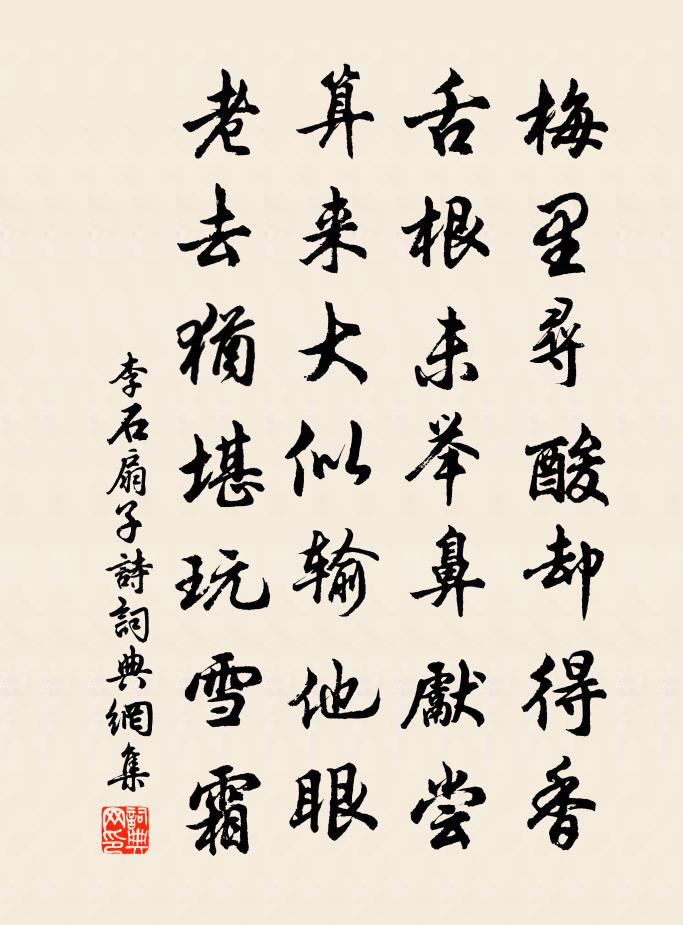 梅里尋酸却得香
舌根未举鼻獻尝
算来大似输他眼
老去猶堪玩雪霜
李石扇子詩詞典網集
詞典网印